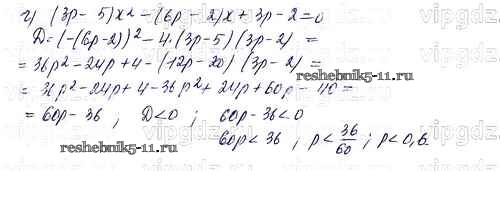 г) (3p - 5)x² - (6p - 2)x + 3p - 2 = 0
D = (-(6p-2))² - 4·(3p-5)(3p-2) =
= 36p² - 24p + 4 - (12p - 20)(3p - 2) =
= 36p² - 24p + 4 - 36p² + 24p + 60p - 40 =
= 60p - 36 ; D < 0 ; 60p - 36 < 0
60p < 36 ; p < 36/60 ; p < 0,6.
reshebnik5-11.ru
reshebnik5-11.ru
vipgdz
vipgdz
vipgdz